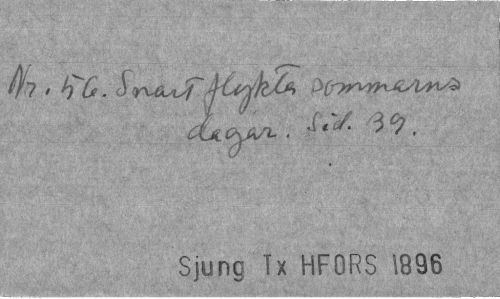 Nr. 56. Snart flykta sommarns
dagar. Sid. 39.
Sjung Tx HFORS 1896